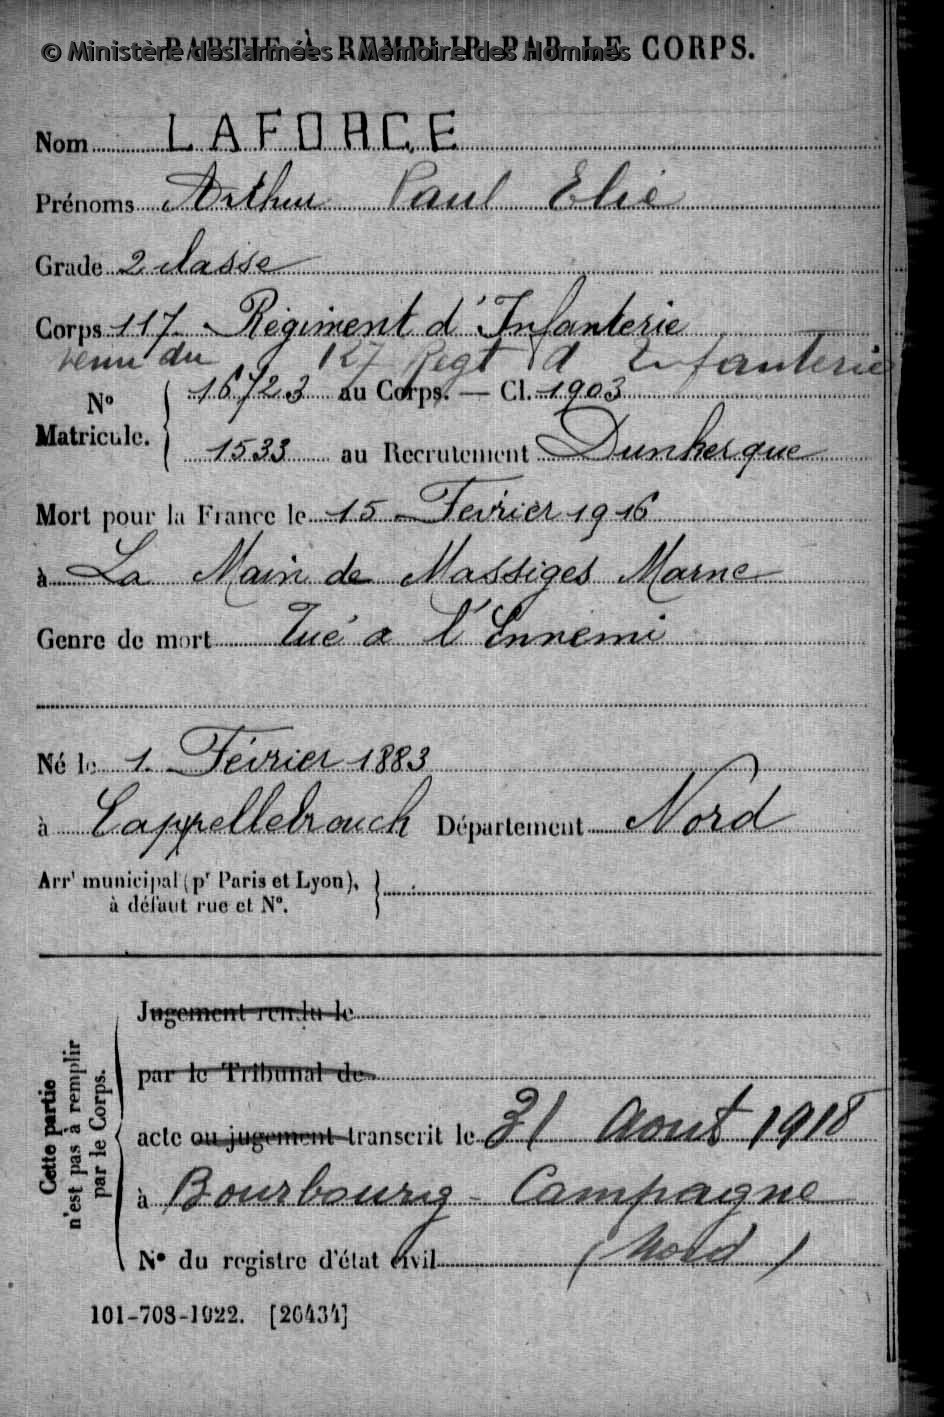 © Ministère des armées - Mémoire des Hommes
PARTIE À REMPLIR PAR LE CORPS.
Nom LAFORCE
Prénoms Arthur Paul Elie
Grade 2 classe
Corps 117 Régiment d'Infanterie
venu du 127 Regt d'Infanterie
N° Matricule. 16723 au Corps. — Cl. 1903
1533 au Recrutement Dunkerque
Mort pour la France le 15 Février 1916
à La Main de Massiges Marne
Genre de mort Tué a l'Ennemi
Né le 1. Février 1883
à Cappellebrouck Département Nord
Arrt municipal (pr Paris et Lyon),
à défaut rue et N°.
Cette partie
n'est pas à remplir
par le Corps.
Jugement rendu le
par le Tribunal de
acte ou jugement transcrit le 31 Aout 1918
à Bourbourg-Campagne
N° du registre d'état civil (Nord)
101-708-1922. [26434]